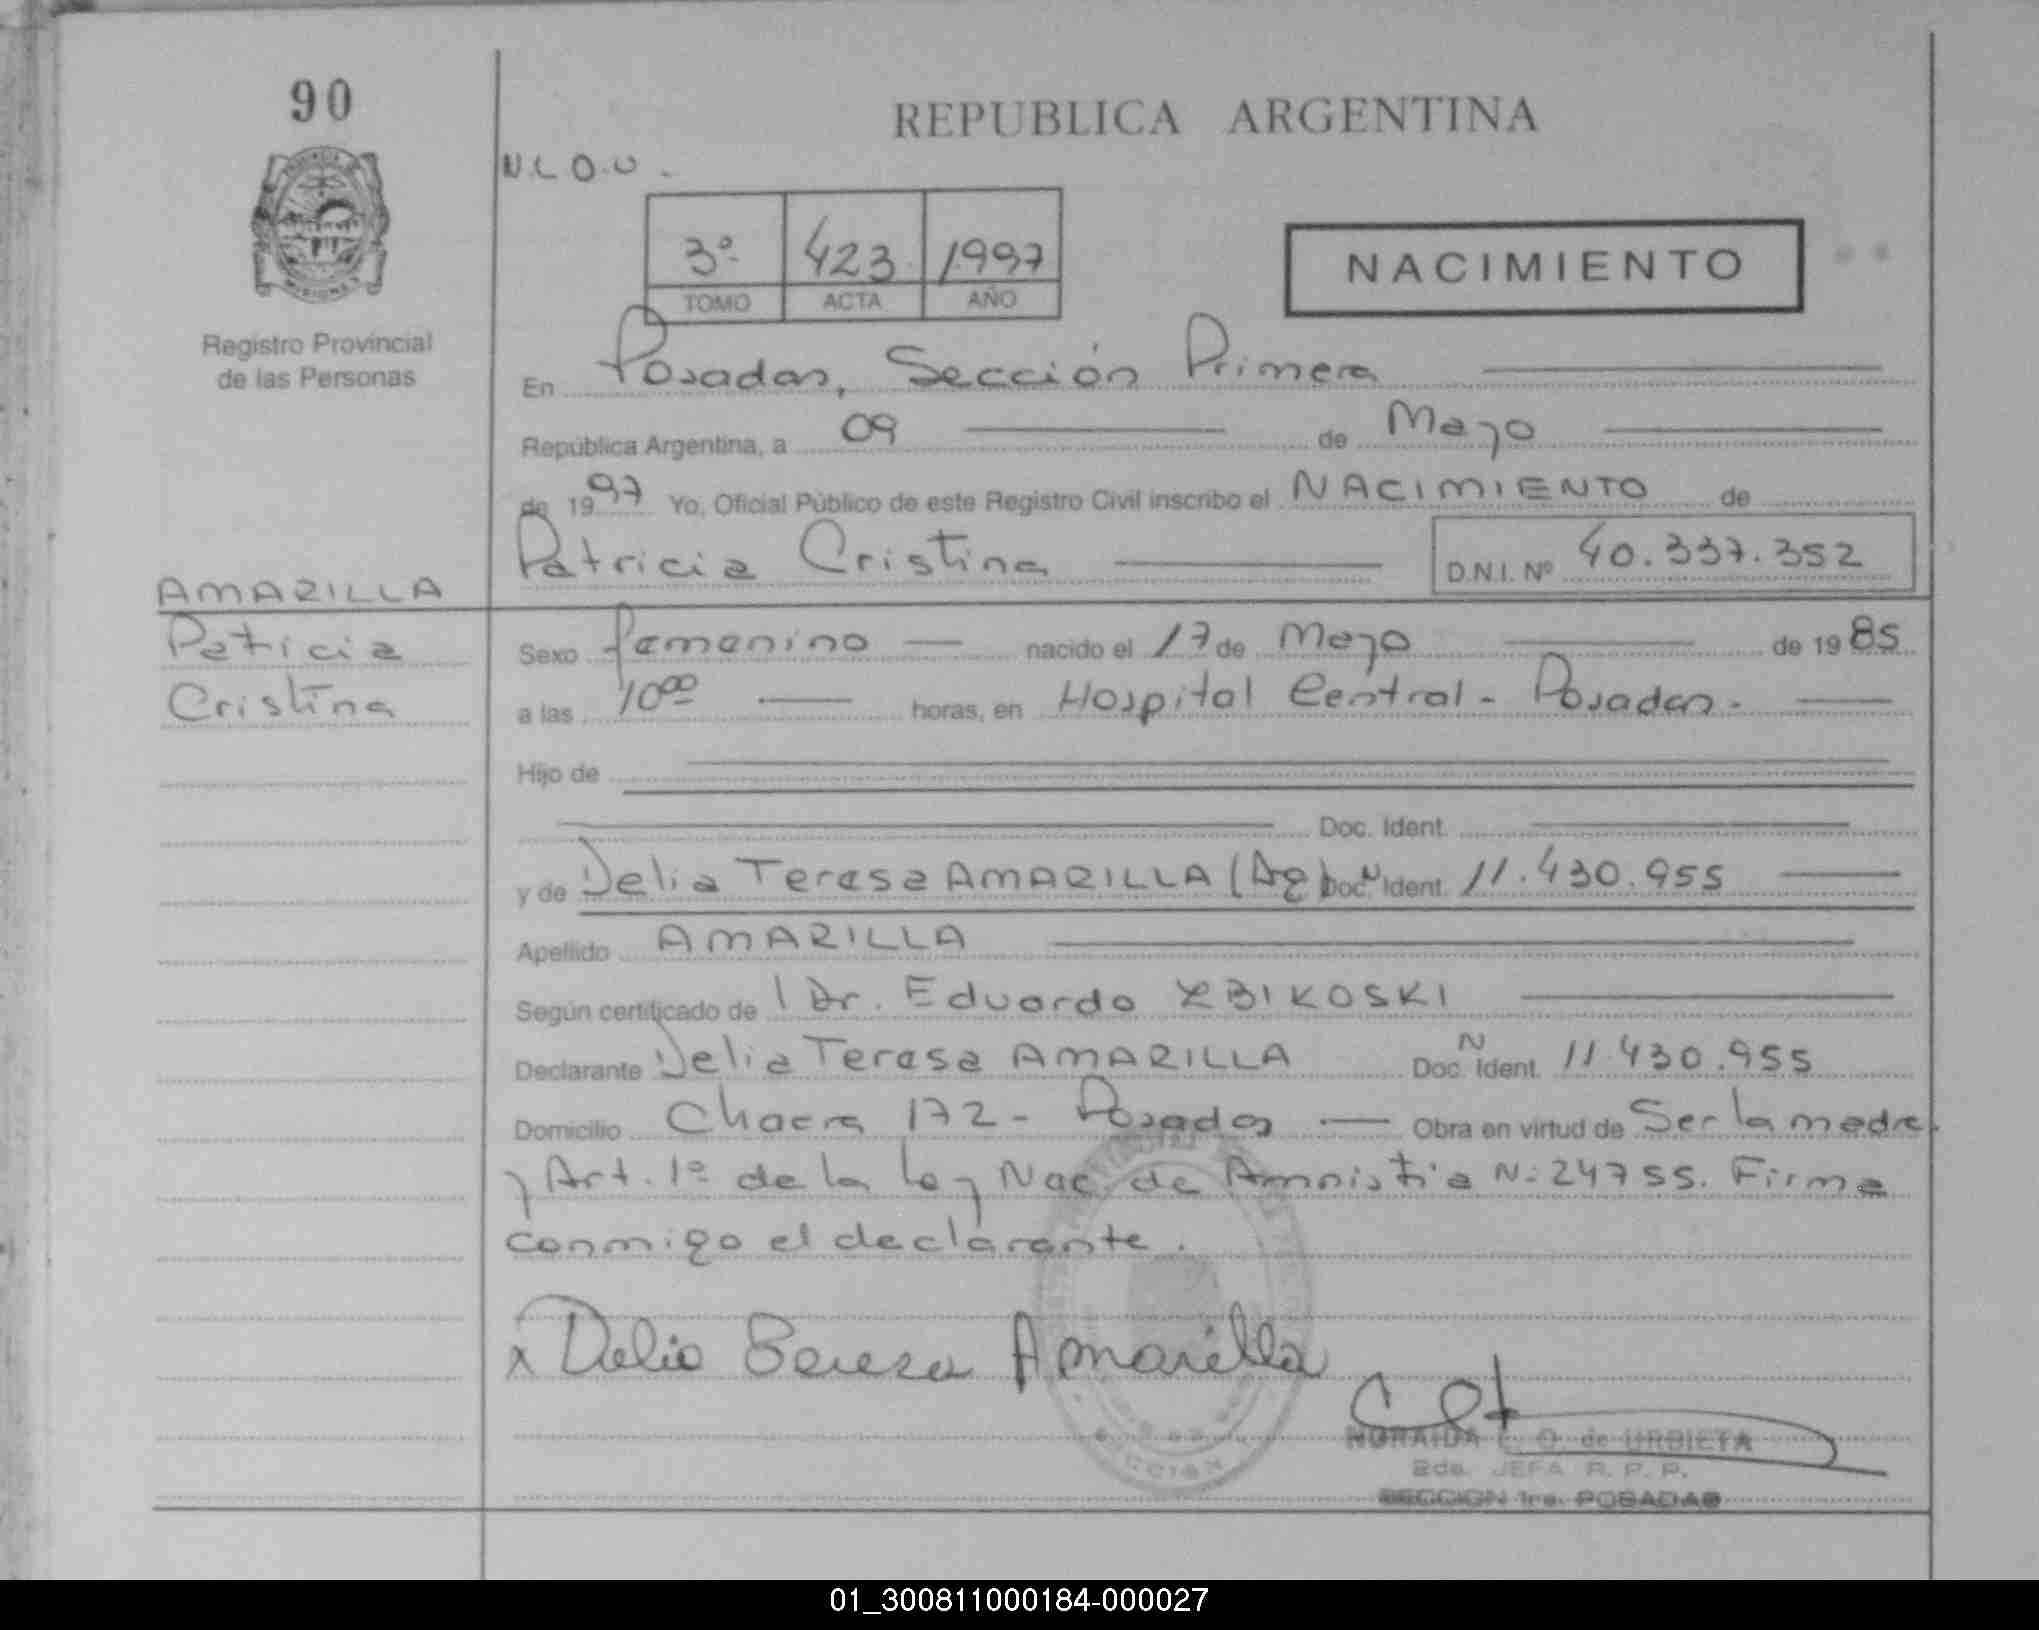 90
REPUBLICA ARGENTINA
N.L.O.U.
3º 423 1997
TOMO ACTA AÑO
NACIMIENTO
Registro Provincial
de las Personas
En Posadas, Sección Primera
República Argentina, a 09 de Mayo
de 1997 Yo, Oficial Público de este Registro Civil inscribo el NACIMIENTO de
Patricia Cristina D.N.I. Nº 40.337.352
AMARILLA
Patricia
Cristina
Sexo femenino nacido el 17 de Mayo de 1985
a las 10⁰⁰ horas, en Hospital Central - Posadas.
Hijo de
Doc. Ident.
y de Delia Teresa AMARILLA (Ag) Doc. N Ident. 11.430.955
Apellido AMARILLA
Según certificado de Dr. Eduardo ZBIKOSKI
Declarante Delia Teresa AMARILLA Doc. N Ident. 11.430.955
Domicilio Chacra 172 - Posadas Obra en virtud de Ser la madre
y Art. 1º de la Ley Nac. de Amnistia N: 24755. Firma
conmigo el declarante.
x Delia Teresa Amarilla
NORAIDA C. O. de URBIETA
2da. JEFA R. P. P.
SECCION 1ra. POSADAS
01_300811000184-000027